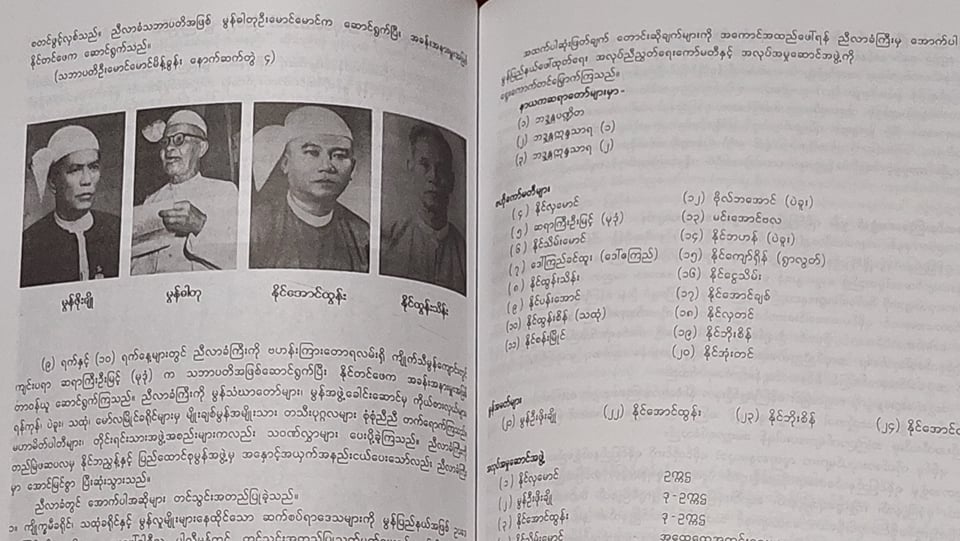 စတင်ဖွင့်လှစ်သည်။ ညီလာခံသဘာပတိအဖြစ် မွန်ဓါတုဦးမောင်မောင်က ဆောင်ရွက်ပြီး အခန်းအနားမှူးအဖြစ်
နိုင်တင်ဖေက ဆောင်ရွက်သည်။
(သဘာပတိဦးမောင်မောင်မိန့်ခွန်း နောက်ဆက်တွဲ ၄)
မွန်ဖိုးချို
မွန်ဓါတု
နိုင်အောင်ထွန်း
နိုင်ထွန်းသိန်း
(၉) ရက်နှင့် (၁၀) ရက်နေ့များတွင် ညီလာခံကြီးကို ဗဟန်းကြားတောရလမ်းရှိ ကျိုက်သိမွန်ကျောင်းတွင်
ကျင်းပရာ ဆရာကြီးဦးမြင့် (မုဒုံ) က သဘာပတိအဖြစ်ဆောင်ရွက်ပြီး နိုင်တင်ဖေက အခန်းအနားမှူးအဖြစ်
တာဝန်ယူ ဆောင်ရွက်ကြသည်။ ညီလာခံကြီးကို မွန်သံဃာတော်များ၊ မွန်အဖွဲ့ခေါင်းဆောင်မှ ကိုယ်စားလှယ်များ
ရန်ကုန်၊ ပဲခူး၊ သထုံ၊ မော်လမြိုင်ခရိုင်များမှ မျိုးချစ်မွန်အမျိုးသား တသီးပုဂ္ဂလများ စုံစုံညီညီ တက်ရောက်ကြသည်
မဟာမိတ်ပါတီများ၊ တိုင်းရင်းသားအဖွဲ့အစည်းများကလည်း သဝဏ်လွှာများ ပေးပို့ခဲ့ကြသည်။ ညီလာခံကြီး
တည်မြဲဖဆပလမှ နိုင်ဘညွန့်နှင့် ပြည်ထောင်စုမွန်အဖွဲ့မှ အနှောင့်အယှက်အနည်းငယ်ပေးသော်လည်း ညီလာခံကြီး
မှာ အောင်မြင်စွာ ပြီးဆုံးသွားသည်။
ညီလာခံတွင် အောက်ပါအဆိုများ တင်သွင်းအတည်ပြုခဲ့သည်။
၁။ ကျိုက္ခမီခရိုင်၊ သထုံခရိုင်နှင့် မွန်လူမျိုးများနေထိုင်သော ဆက်စပ်ရာဒေသများကို မွန်ပြည်နယ်အဖြစ်
အထက်ပါဆုံးဖြတ်ချက် တောင်းဆိုချက်များကို အကောင်အထည်ဖေါ်ရန် ညီလာခံကြီးမှ အောက်ပါ
မွန်ပြည်နယ်ဖေါ်ထုတ်ရေး အလုပ်ညီညွတ်ရေးကော်မတီနှင့် အလုပ်အမှုဆောင်အဖွဲ့ကို
ရွေးကောက်တင်မြှောက်ကြသည်။
နာယကဆရာတော်များမှာ -
(၁) ဘဒ္ဒန္တပဏ္ဍိတ
(၂) ဘဒ္ဒန္တဣန္ဒသာရ (၁)
(၃) ဘဒ္ဒန္တဣန္ဒသာရ (၂)
ဗဟိုကော်မတီများ
(၄) နိုင်လှမောင်
(၅) ဆရာကြီးဦးမြင့် (မုဒုံ)
(၆) နိုင်သိမ်းမောင်
(၇) ဒေါ်ကြည်ခင်ထူး (ဒေါ်စကြည်)
(၈) နိုင်ထွန်းသိန်း
(၉) နိုင်ပန်းအောင်
(၁၀) နိုင်ထွန်းစိန် (သထုံ)
(၁၁) နိုင်စန်းမြိုင်
(၁၂) ဗိုလ်ဘအောင် (ပဲခူး)
(၁၃) မင်းအောင်ဗလ
(၁၄) နိုင်ဘဟန် (ပဲခူး)
(၁၅) နိုင်ကျော်ရှိန် (ရွာလွတ်)
(၁၆) နိုင်ငွေသိမ်း
(၁၇) နိုင်အောင်ချစ်
(၁၈) နိုင်လှတင်
(၁၉) နိုင်ဘိုးစိန်
(၂၀) နိုင်အုံးတင်
မွန်အမတ်များ
(၂၁) မွန်ဦးဖိုးချို (၂၂) နိုင်အောင်ထွန်း (၂၃) နိုင်ဘိုးစိန် (၂၄) နိုင်အောင်
အလုပ်အမှုဆောင်အဖွဲ့
(၁) နိုင်လှမောင် ဥက္ကဋ္ဌ
(၂) မွန်ဦးဖိုးချို ဒု - ဥက္ကဋ္ဌ
(၃) နိုင်အောင်ထွန်း ဒု - ဥက္ကဋ္ဌ